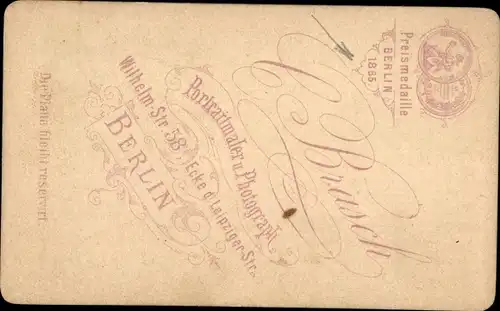 Preismedaille
BERLIN
1865
C. Brasch
Portraitmaler u. Photograph
Wilhelm-Str. 58 Ecke d. Leipziger-Str.
BERLIN
Die Platte bleibt reservirt.